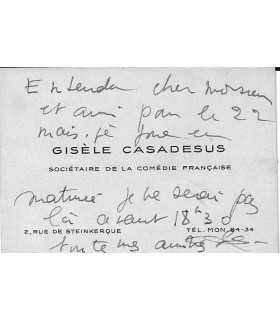 Entendu cher Monsieur
et ami pour le 22
mais je joue en
GISÈLE CASADESUS
SOCIÉTAIRE DE LA COMÉDIE FRANÇAISE
matinée je ne serai pas
là avant 18h30
2, RUE DE STEINKERQUE TÉL. MON. 64-34
toute mes amitiés